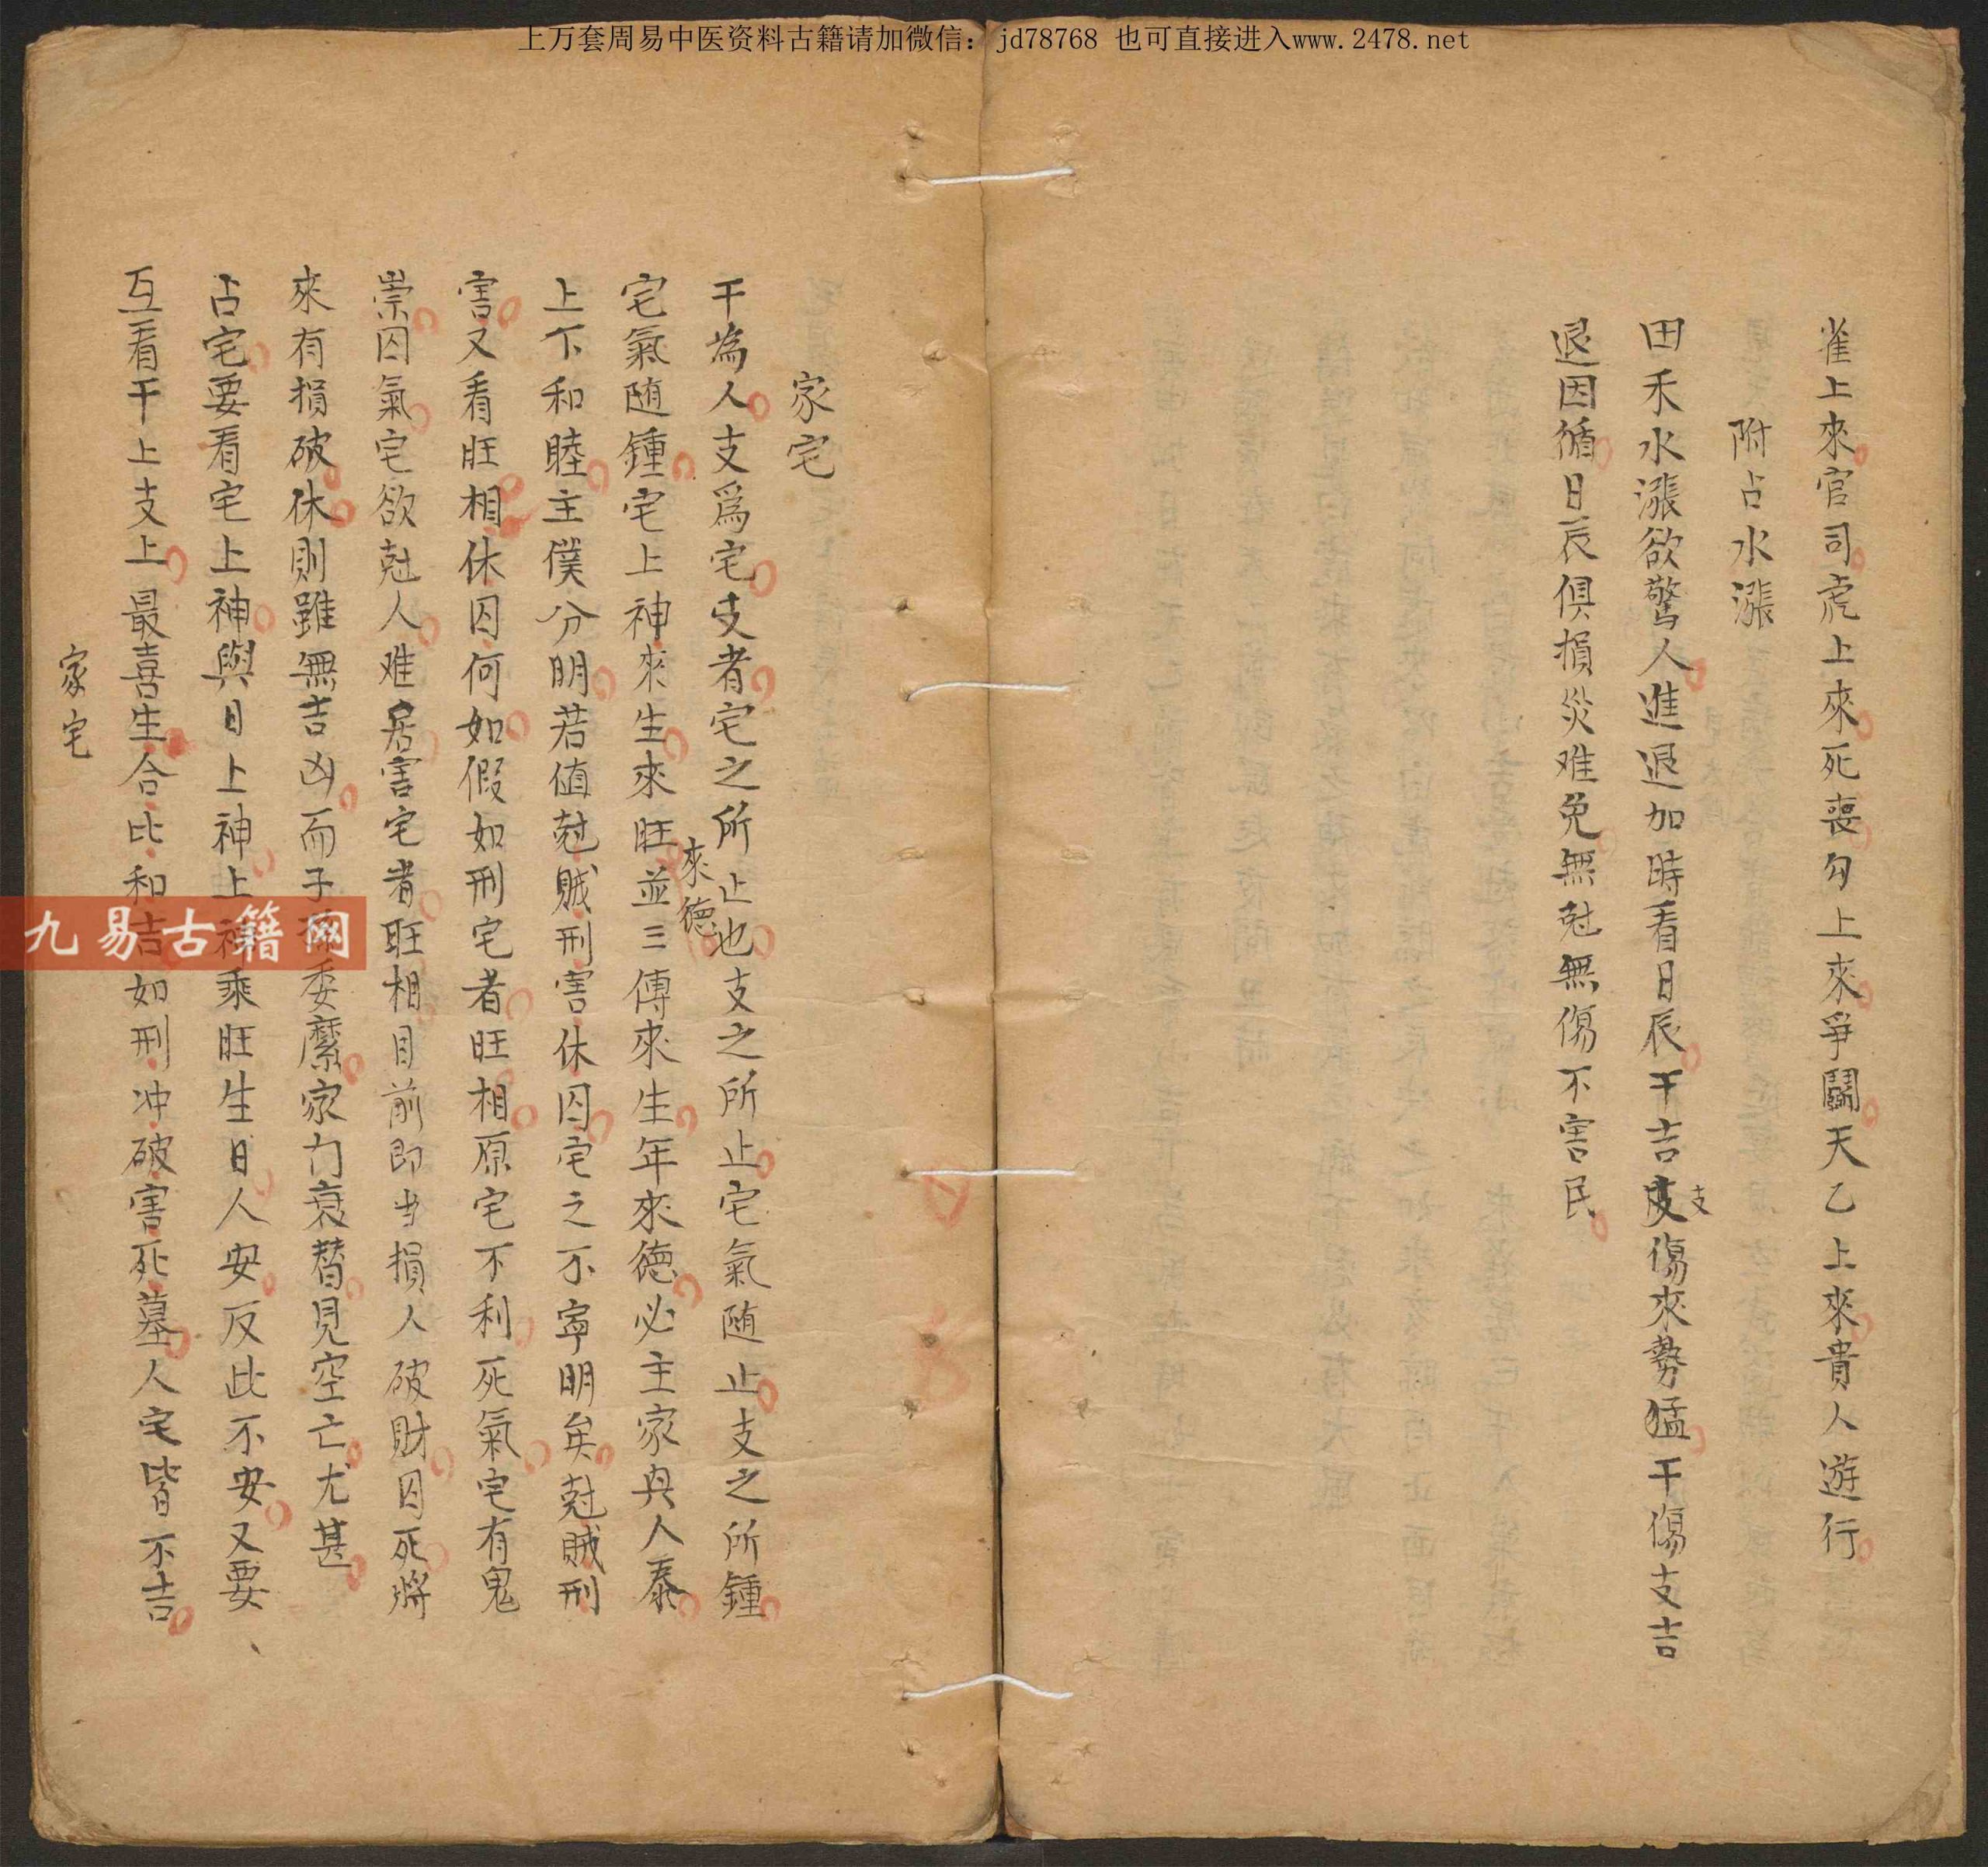 上万套周易中医资料古籍请加微信：jd78768 也可直接进入www.2478.net
雀上來官司虎上來死喪勾上來爭鬭天乙上來貴人遊行
附占水漲
田禾水漲欲驚人進退加時看日辰干吉支傷來勢猛干傷支吉
退因循日辰俱損災难免無尅無傷不害民
家宅
干為人支爲宅支者宅之所止也支之所止宅氣随止支之所鍾
宅氣随鍾宅上神來生來旺來德並三傳來生年來德必主家興人泰
上下和睦主僕分明若值尅賊刑害休囚宅之不寧明矣尅賊刑
害又看旺相休囚何如假如刑宅者旺相原宅不利死氣宅有鬼
祟囚氣宅欲尅人难居害宅者旺相目前即当損人破財囚死將
來有損破休則雖無吉凶而子孫委靡家门衰替見空亡尤甚
占宅要看宅上神與日上神上神乘旺生日人安反此不安又要
互看干上支上最喜生合比和吉如刑冲破害死墓人宅皆不吉
家宅
九易古籍网